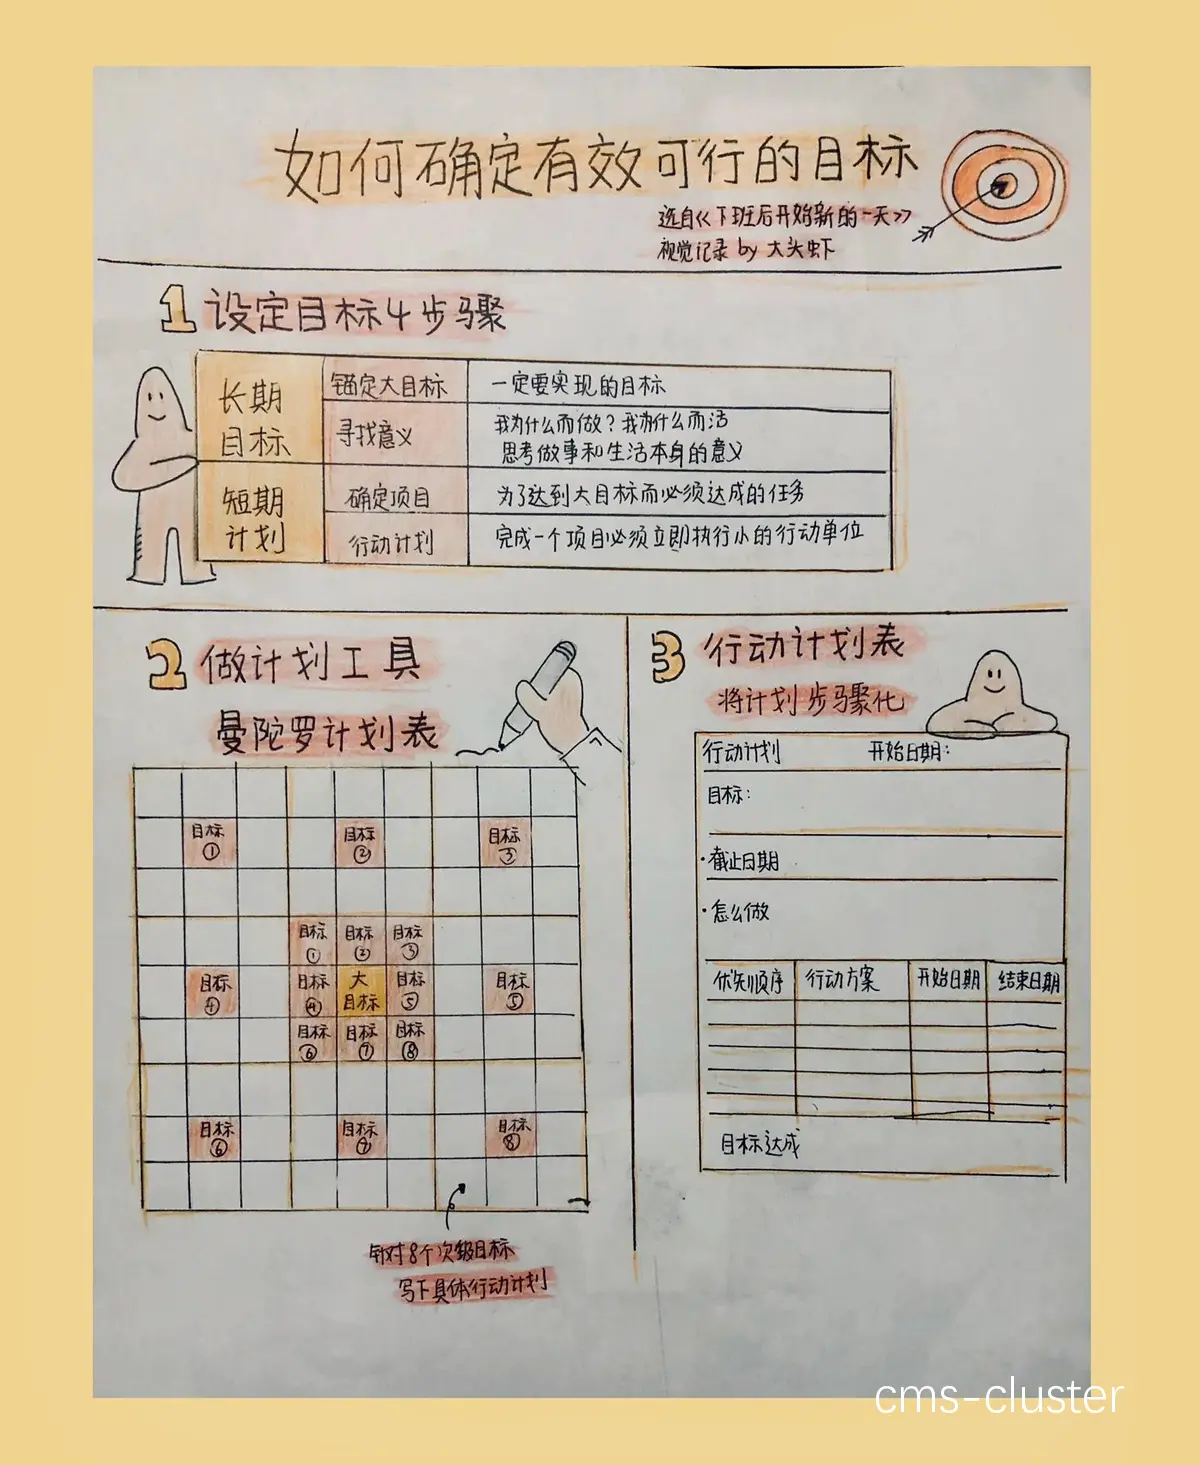 如何确定有效可行的目标
选自《下班后开始新的一天》
视觉记录 by 大头虾
1 设定目标4步骤
长期目标
锚定大目标
一定要实现的目标
寻找意义
我为什么而做？我为什么而活
思考做事和生活本身的意义
短期计划
确定项目
为了达到大目标而必须达成的任务
行动计划
完成一个项目必须立即执行小的行动单位
2 做计划工具
曼陀罗计划表
目标① 目标② 目标③
目标① 目标② 目标③
目标④ 目标④ 大目标 目标⑤ 目标⑤
目标⑥ 目标⑦ 目标⑧
目标⑥ 目标⑦ 目标⑧
针对8个次级目标
写下具体行动计划
3 行动计划表
将计划步骤化
行动计划 开始日期：
目标：
·截止日期
·怎么做
优先顺序 行动方案 开始日期 结束日期
目标达成
cms-cluster